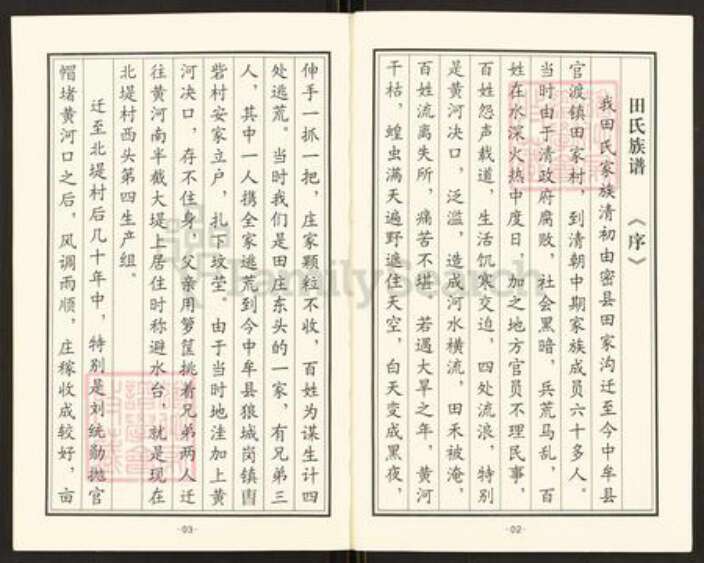 田氏族谱 《序》
我田氏家族清初由密县田家沟迁至今中牟县
官渡镇田家村，到清朝中期家族成员六十多人。
当时由于清政府腐败，社会黑暗，兵荒马乱，百
姓在水深火热中度日，加之地方官员不理民事，
百姓怨声载道，生活饥寒交迫，四处流浪，特别
是黄河决口，泛滥，造成河水横流，田禾被淹，
百姓流离失所，痛苦不堪。若遇大旱之年，黄河
干枯，蝗虫满天遍野遮住天空，白天变成黑夜，
·02·
伸手一抓一把，庄家颗粒不收，百姓为谋生计四
处逃荒。当时我们是田庄东头的一家，有兄弟三
人，其中一人携全家逃荒到今中牟县狼城岗镇
砦村安家立户，扎下坟茔。由于当时地洼加上黄
河决口，存不住身，父亲用箩筐挑着兄弟两人迁
往黄河南半截大堤上居住时称避水台，就是现在
北堤村西头第四生产组。
迁至北堤村后几十年中，特别是刘统勋抛官
帽堵黄河口之后，风调雨顺，庄稼收成较好，亩
·03·
FamilySearch